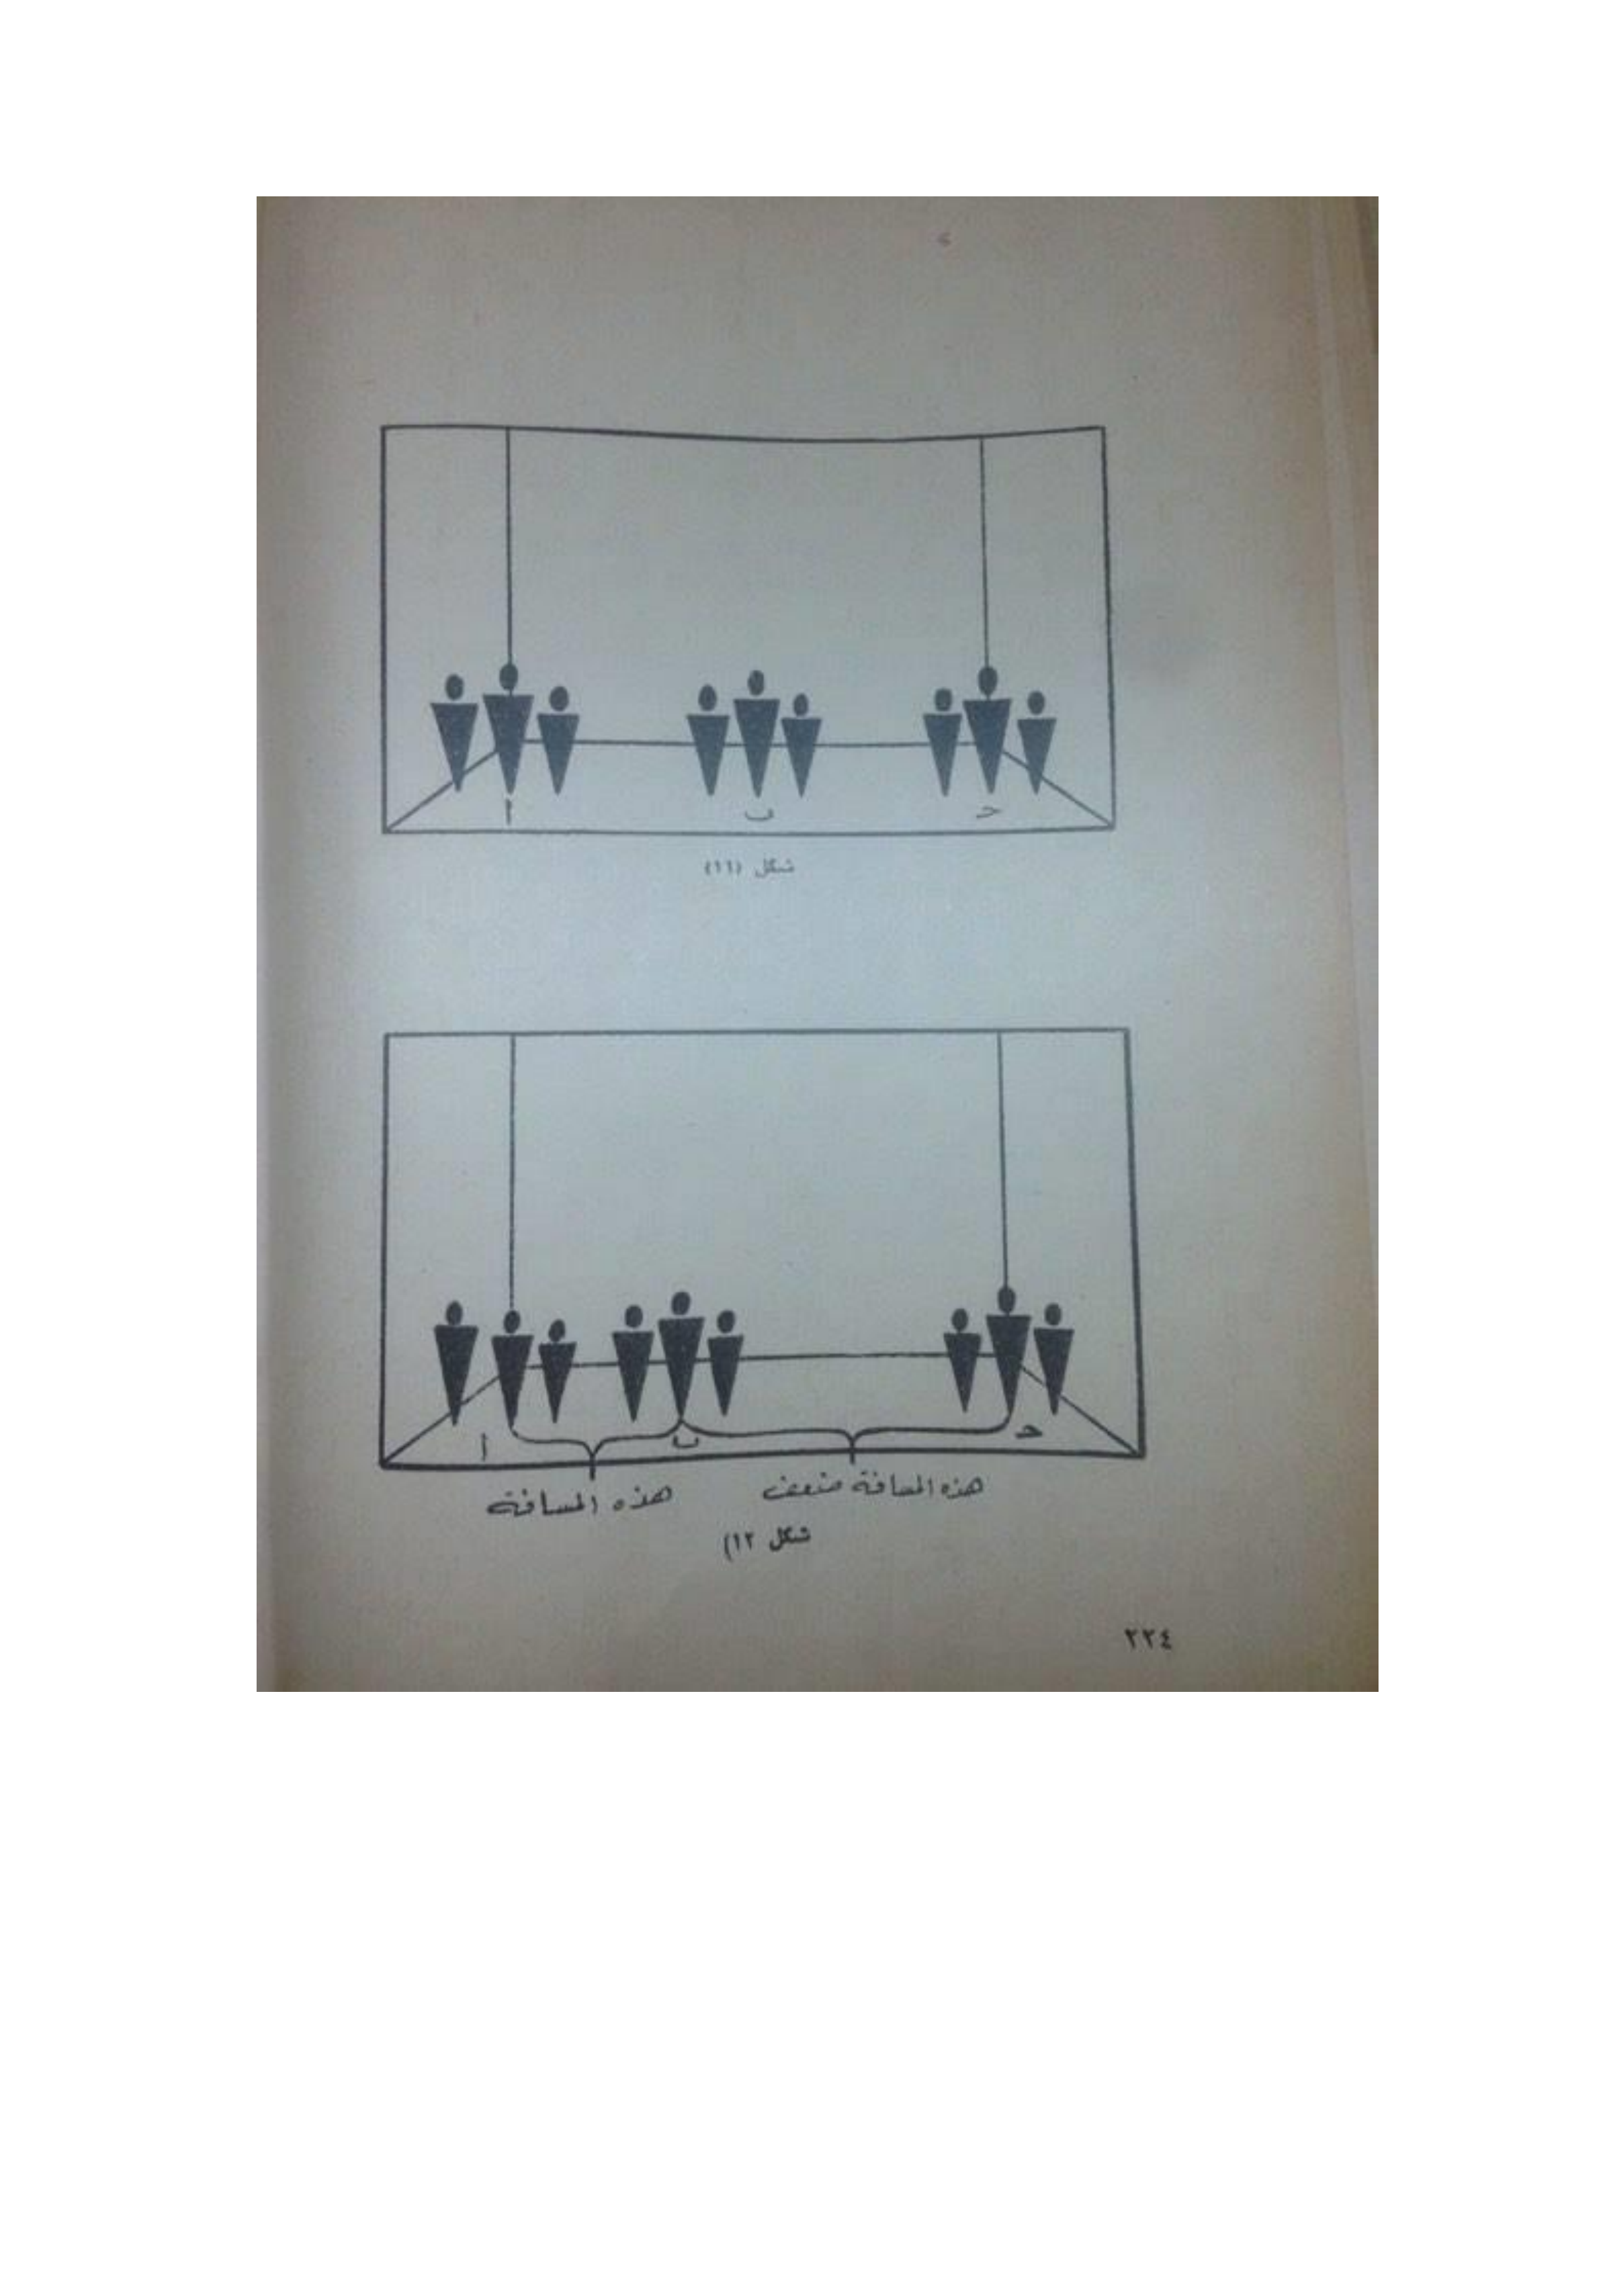 أ ب حـ
شكل (١١)
أ ب حـ
هذه المسافة ضعف هذه المسافة
شكل ١٢)
٢٢٤